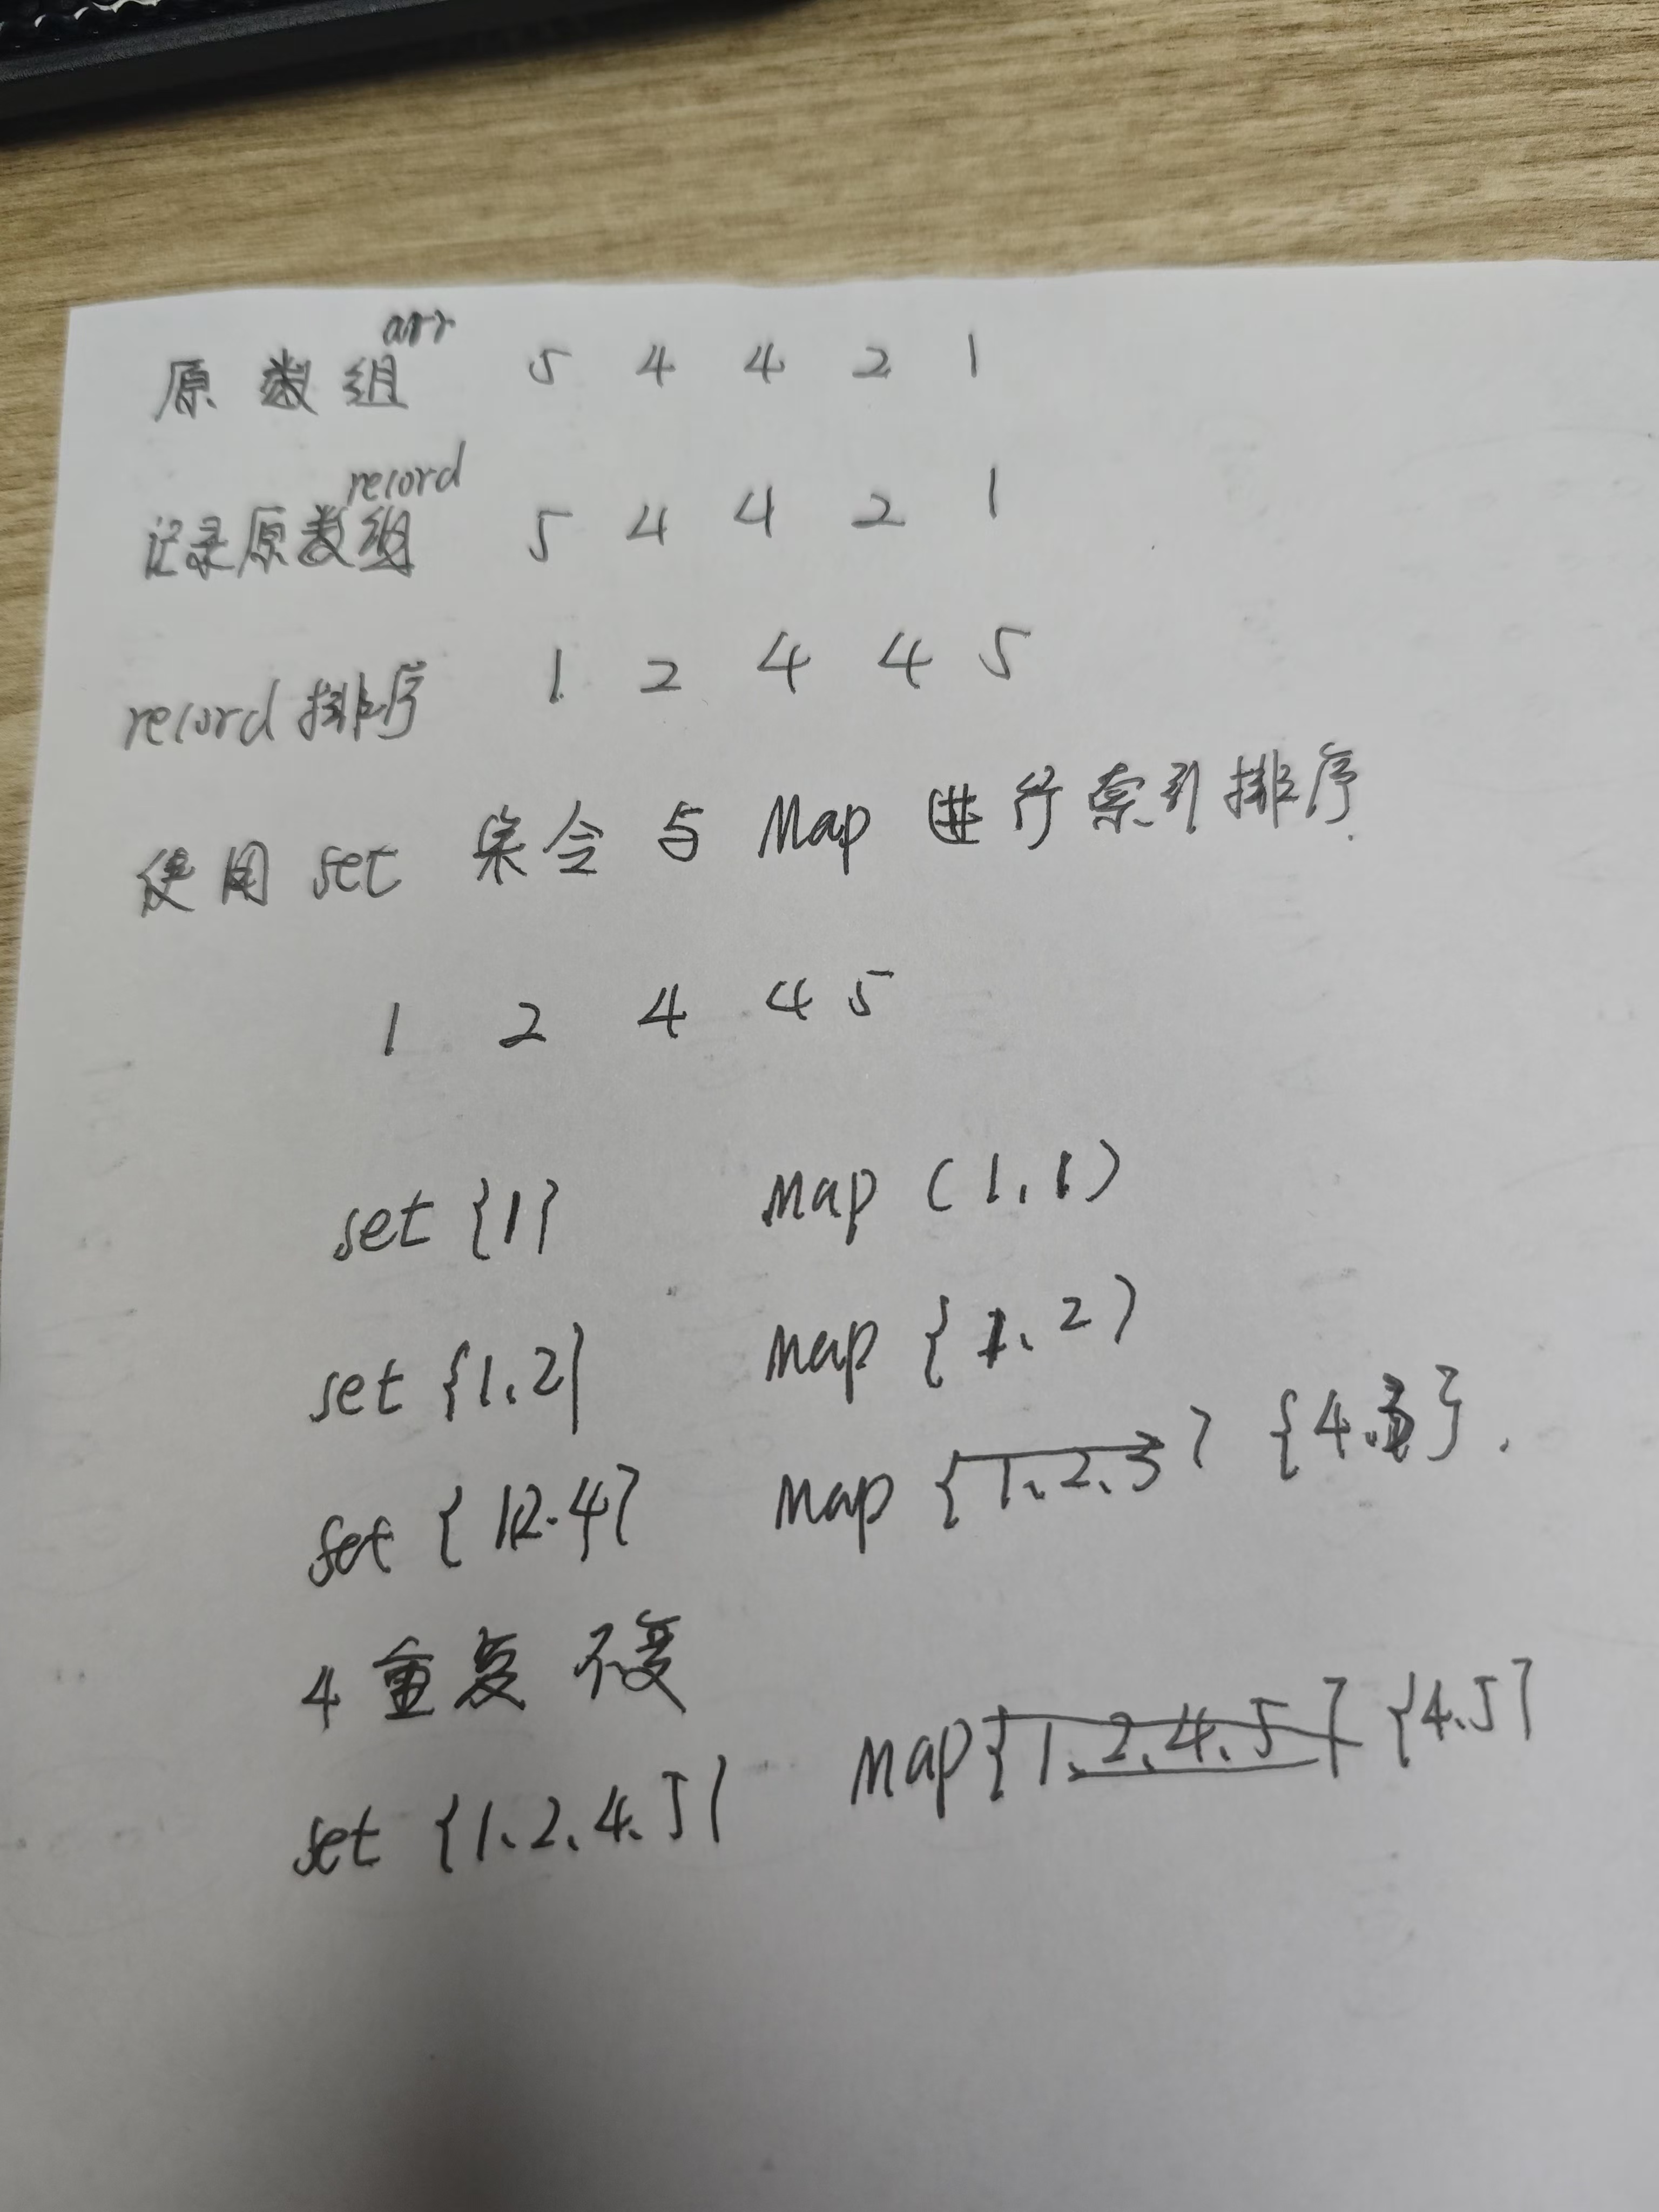 原数组arr 5 4 4 2 1
记录原数组record 5 4 4 2 1
record排序 1 2 4 4 5
使用 set 集合 与 Map 进行索引排序.
1 2 4 4 5
set {1} map (1,1)
set {1、2} map {1、2}
set {1,2.4} map {1、2、3} {4、3}.
4 重复 不变
set {1、2、4、5} map{1、2、4、5} {4、5}